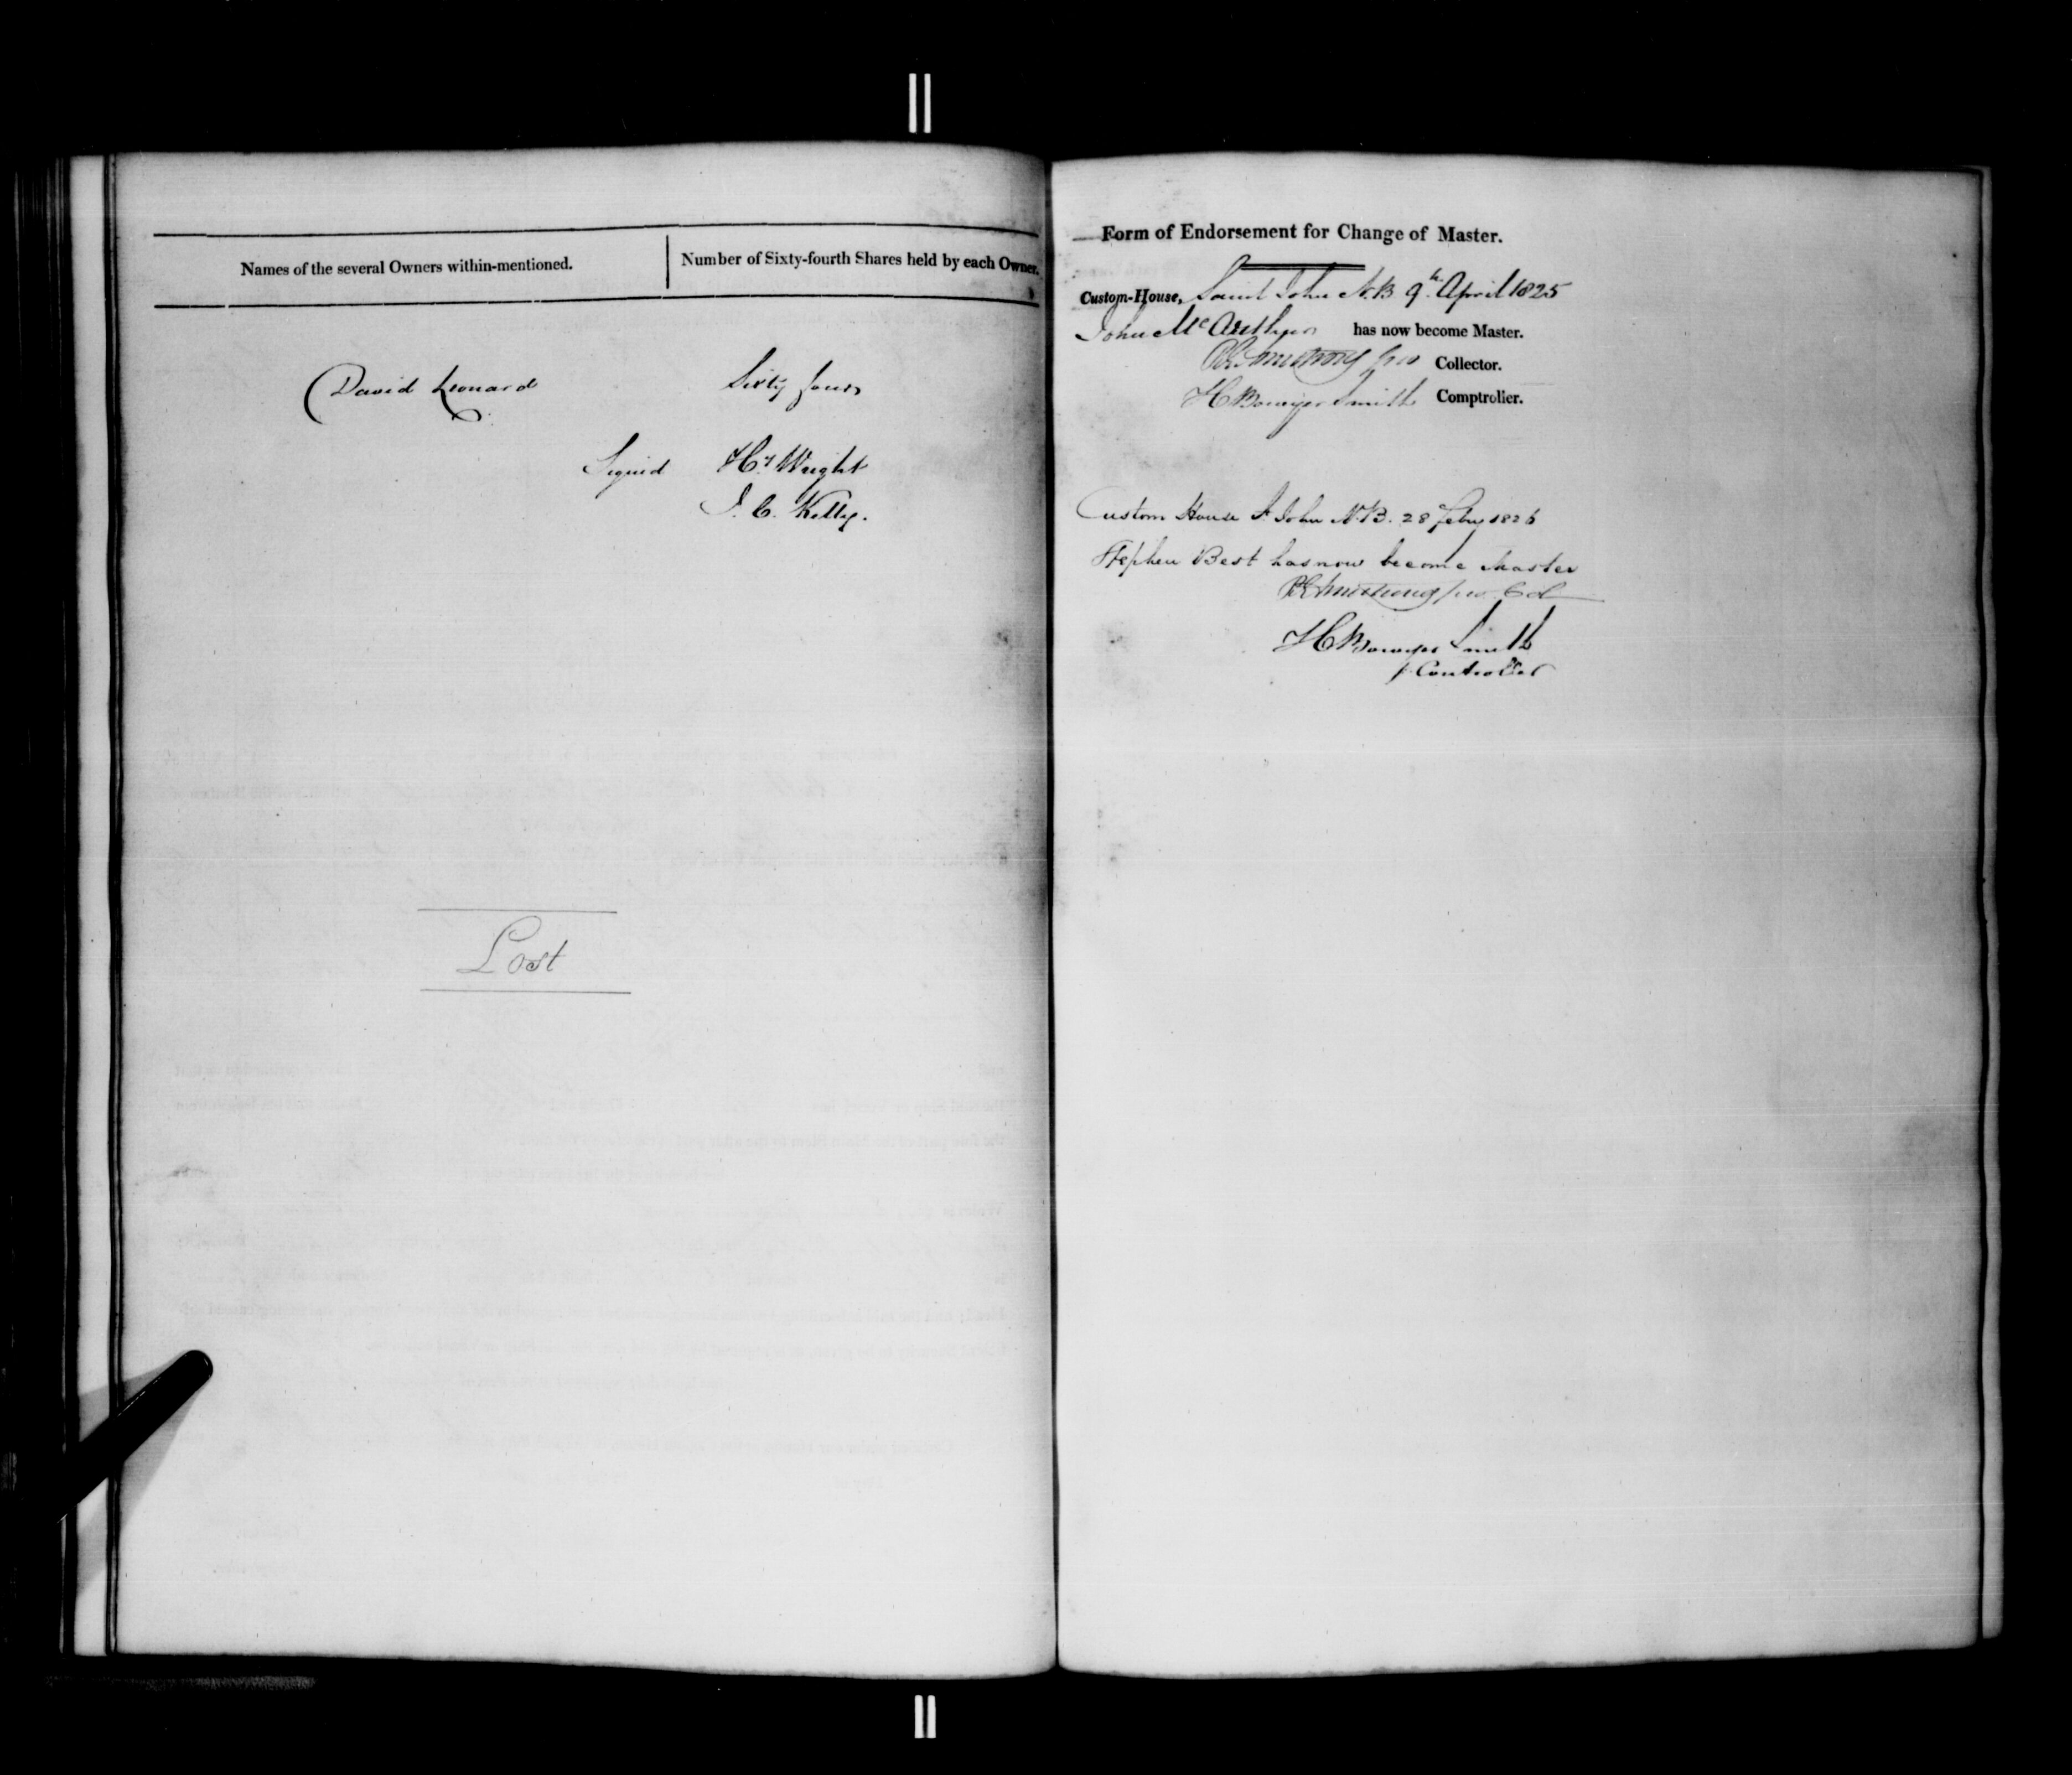 Names of the several Owners within-mentioned.
Number of Sixty-fourth Shares held by each Owner.
David Leonard
Sixty four
Signed Hy Wright
J. C. Kelly.
Lost
Form of Endorsement for Change of Master.
Custom-House, Saint John N.B 9th April 1825
John McArthur has now become Master.
Armstrong Collector.
H Bowyer Smith Comptroller.
Custom House St John N.B. 28 Feby 1826
Stephen Best has now become Master
Armstrong Col
H Bowyer Smith
p Controller